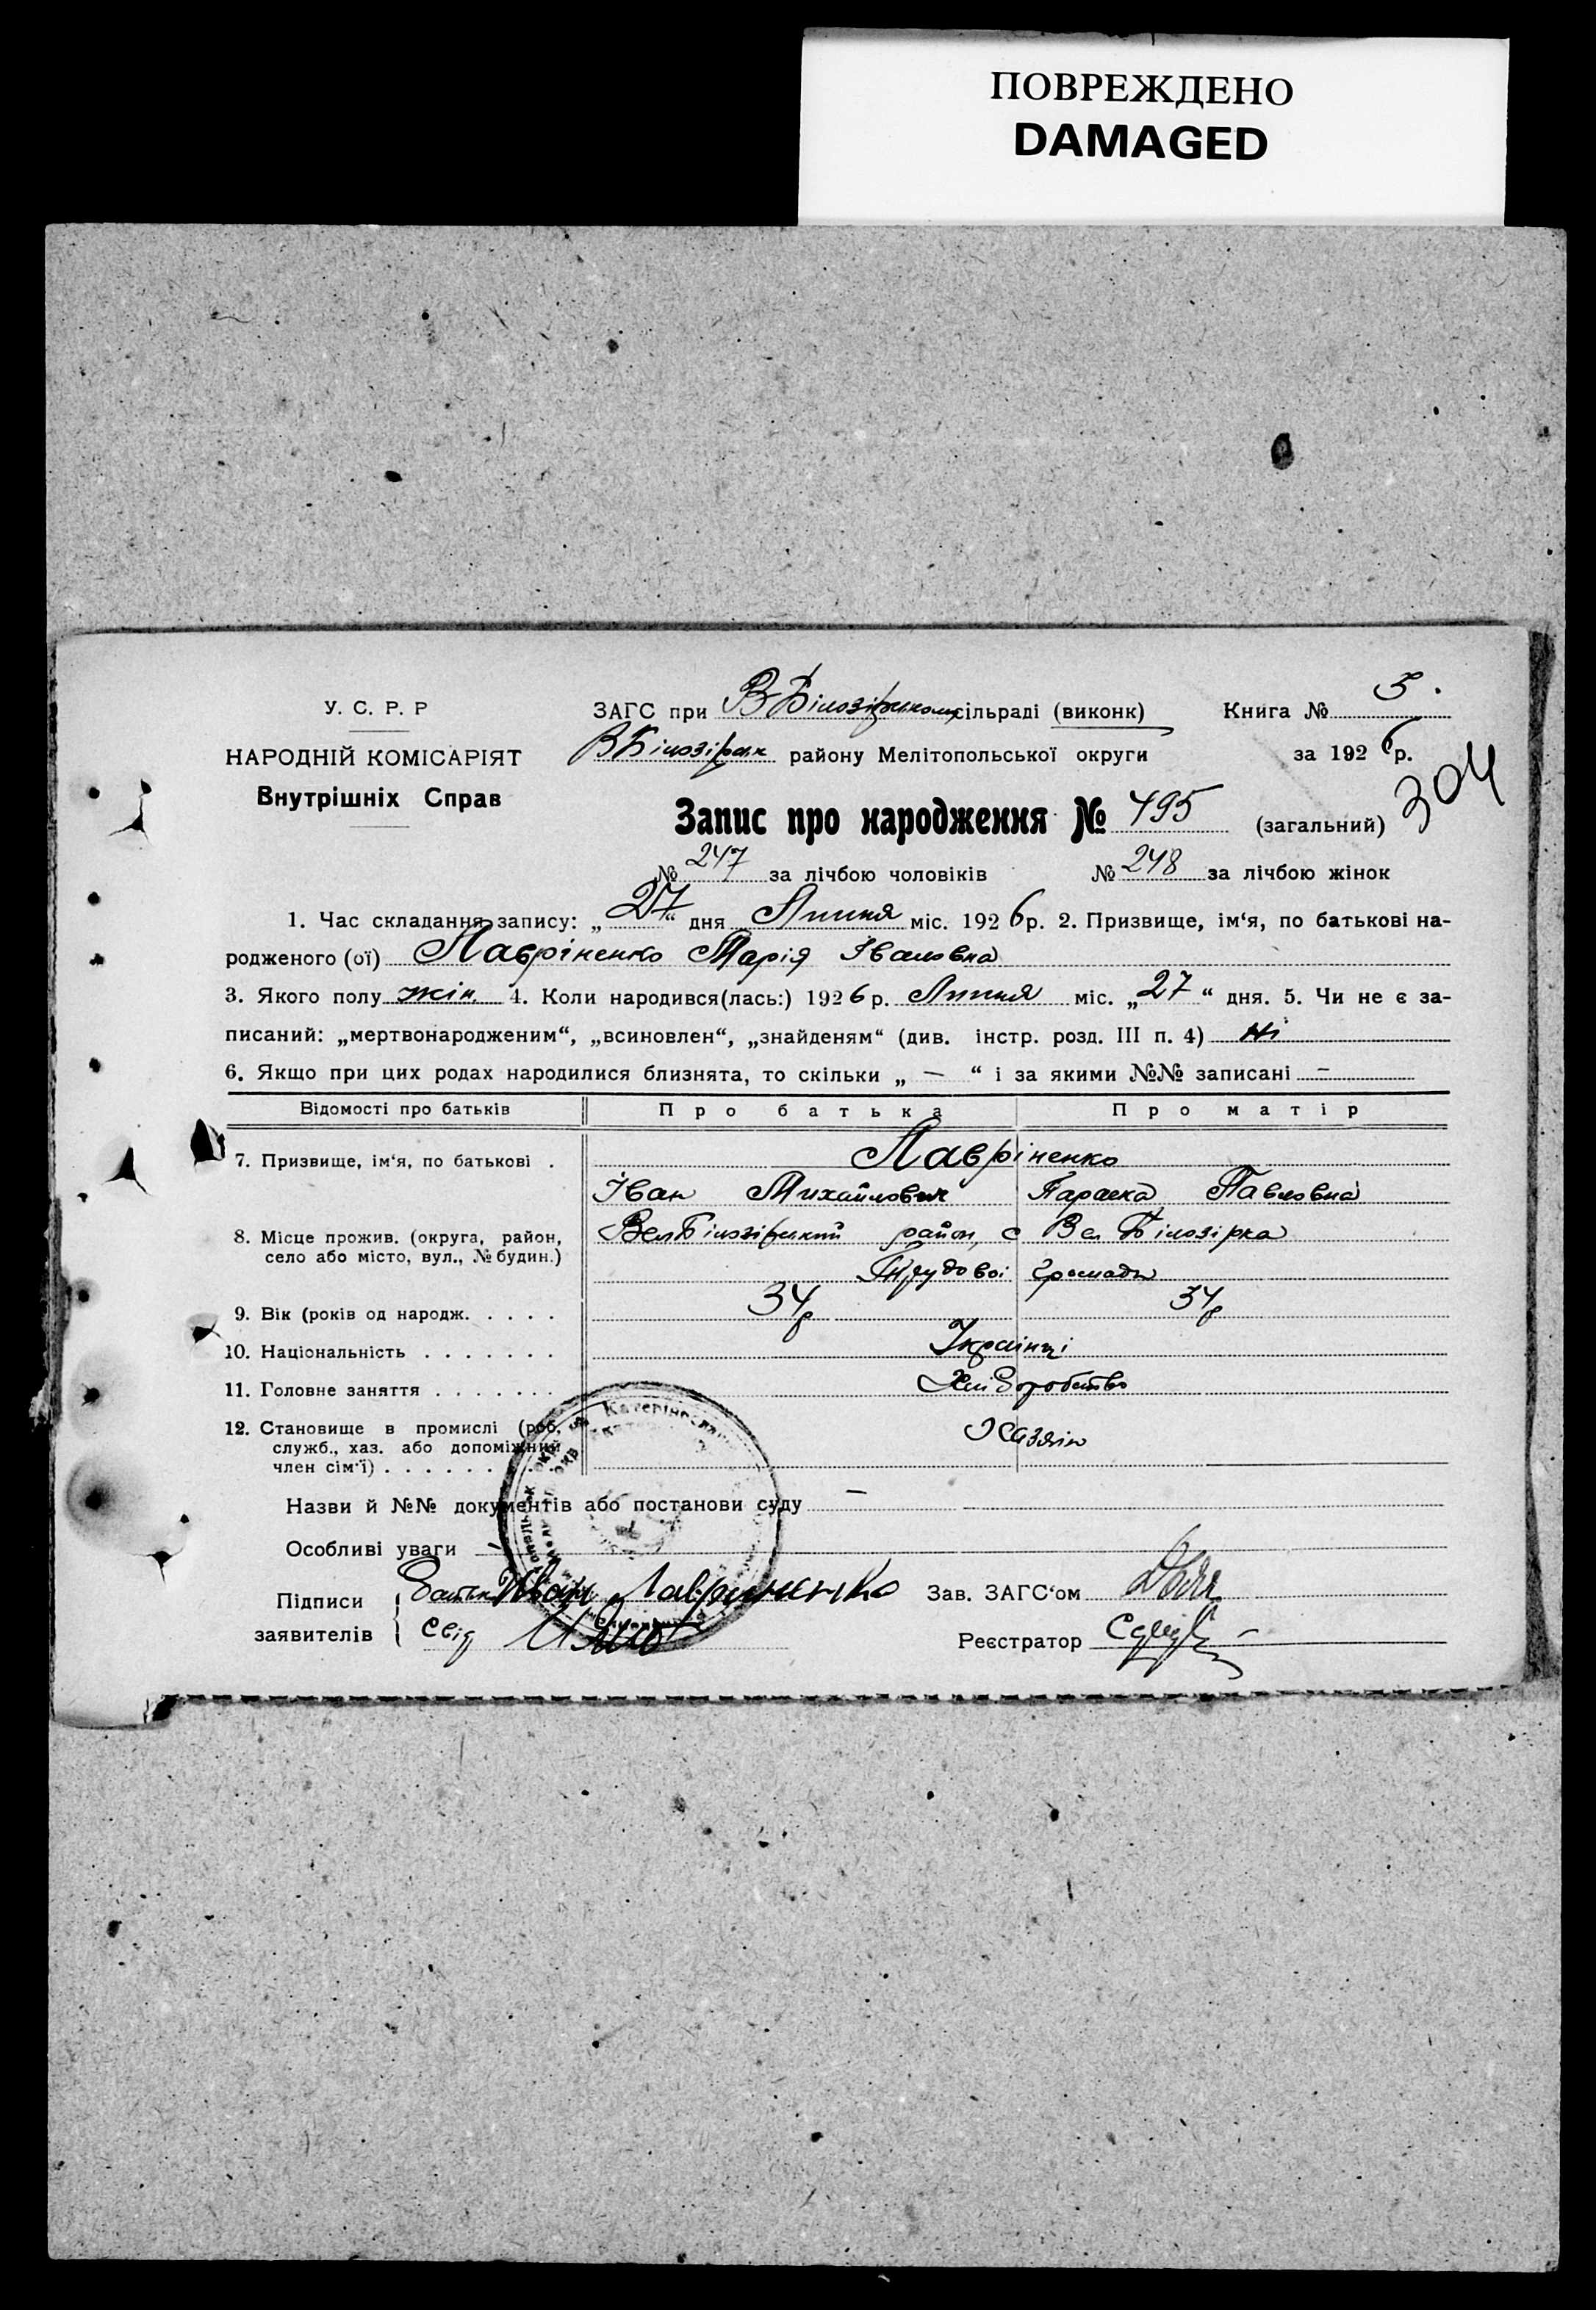 ПОВРЕЖДЕНО
DAMAGED
У. С. Р. Р
НАРОДНІЙ КОМІСАРІЯТ
Внутрішніх Справ
ЗАГС при В Білозірском сільраді (виконк)
В Білозірск району Мелітопольської округи
Книга № 5.
за 1926 р.
304
Запис про народження № 495 (загальний)
№ 247 за лічбою чоловіків № 248 за лічбою жінок
1. Час складання запису: „27“ дня Липня міс. 1926 р. 2. Призвище, ім‘я, по батькові на-
родженого (ої) Лавріненко Марія Івановна
3. Якого полу жін. 4. Коли народився(лась:) 1926 р. Липня міс. „27“ дня. 5. Чи не є за-
писаний: „мертвонародженим“, „всиновлен“, „знайденям“ (див. інстр. розд. III п. 4) Ні
6. Якщо при цих родах народилися близнята, то скільки „ — “ і за якими №№ записані —
Відомості про батьків Про батька Про матір
7. Призвище, ім‘я, по батькові . Лавріненко
Іван Михайлович Параска Павловна
8. Місце прожив. (округа, район,
село або місто, вул., № будин.)
Вел Білозірський район, с Вел Білозірка
Трудовоі громади
9. Вік (років од народж. . . . . 34 р 34 р
10. Національність . . . . . . . Українці
11. Головне заняття . . . . . . . Хліборобство
12. Становище в промислі (роб,
служб., хаз. або допоміжний
член сім‘ї) . . . . . .
Хазяїн
Назви й №№ документів або постанови суду —
Особливі уваги —
Підписи
заявителів
Батьк Іван Лавриненко
Свід
Зав. ЗАГС‘ом
Реєстратор